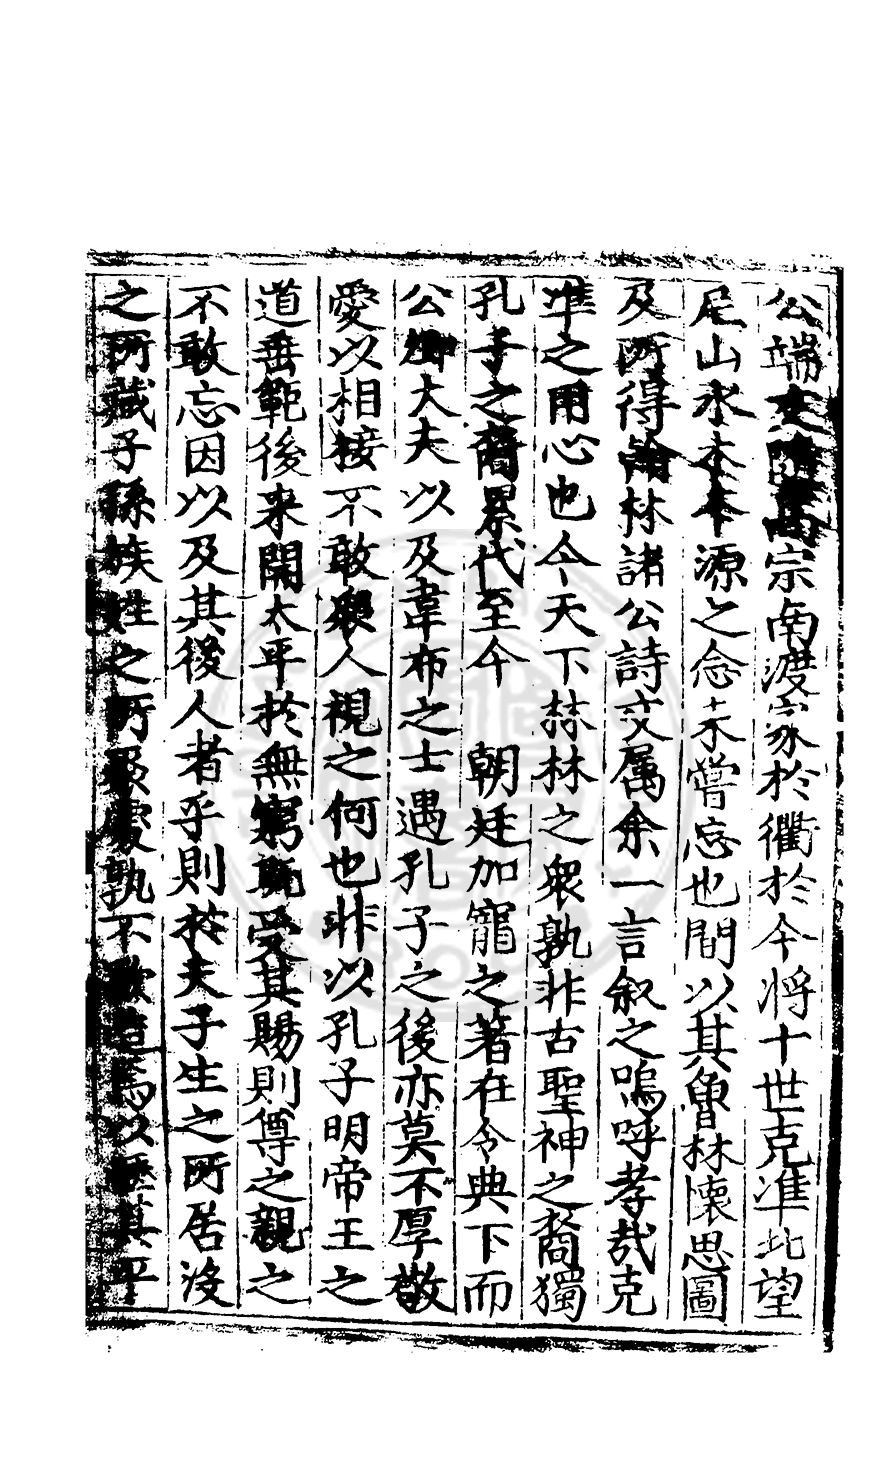 公端友隨高宗南渡家於衢於今將十世克準北望
尼山水木本源之念未嘗忘也間以其魯林懷思圖
及所得翰林諸公詩文属余一言叙之嗚呼孝哉克
準之用心也今天下林林之衆孰非古聖神之裔獨
孔子之裔累代至今　朝廷加寵之著在令典下而
公卿大夫以及韋布之士遇孔子之後亦莫不厚敬
愛以相接不敢衆人視之何也非以孔子明帝王之
道垂範後来開太平於無窮旣受其賜則尊之親之
不敢忘因以及其後人者乎則於夫子生之所居没
之所藏子孫族姓之所聚處孰不欲造焉以歷其平